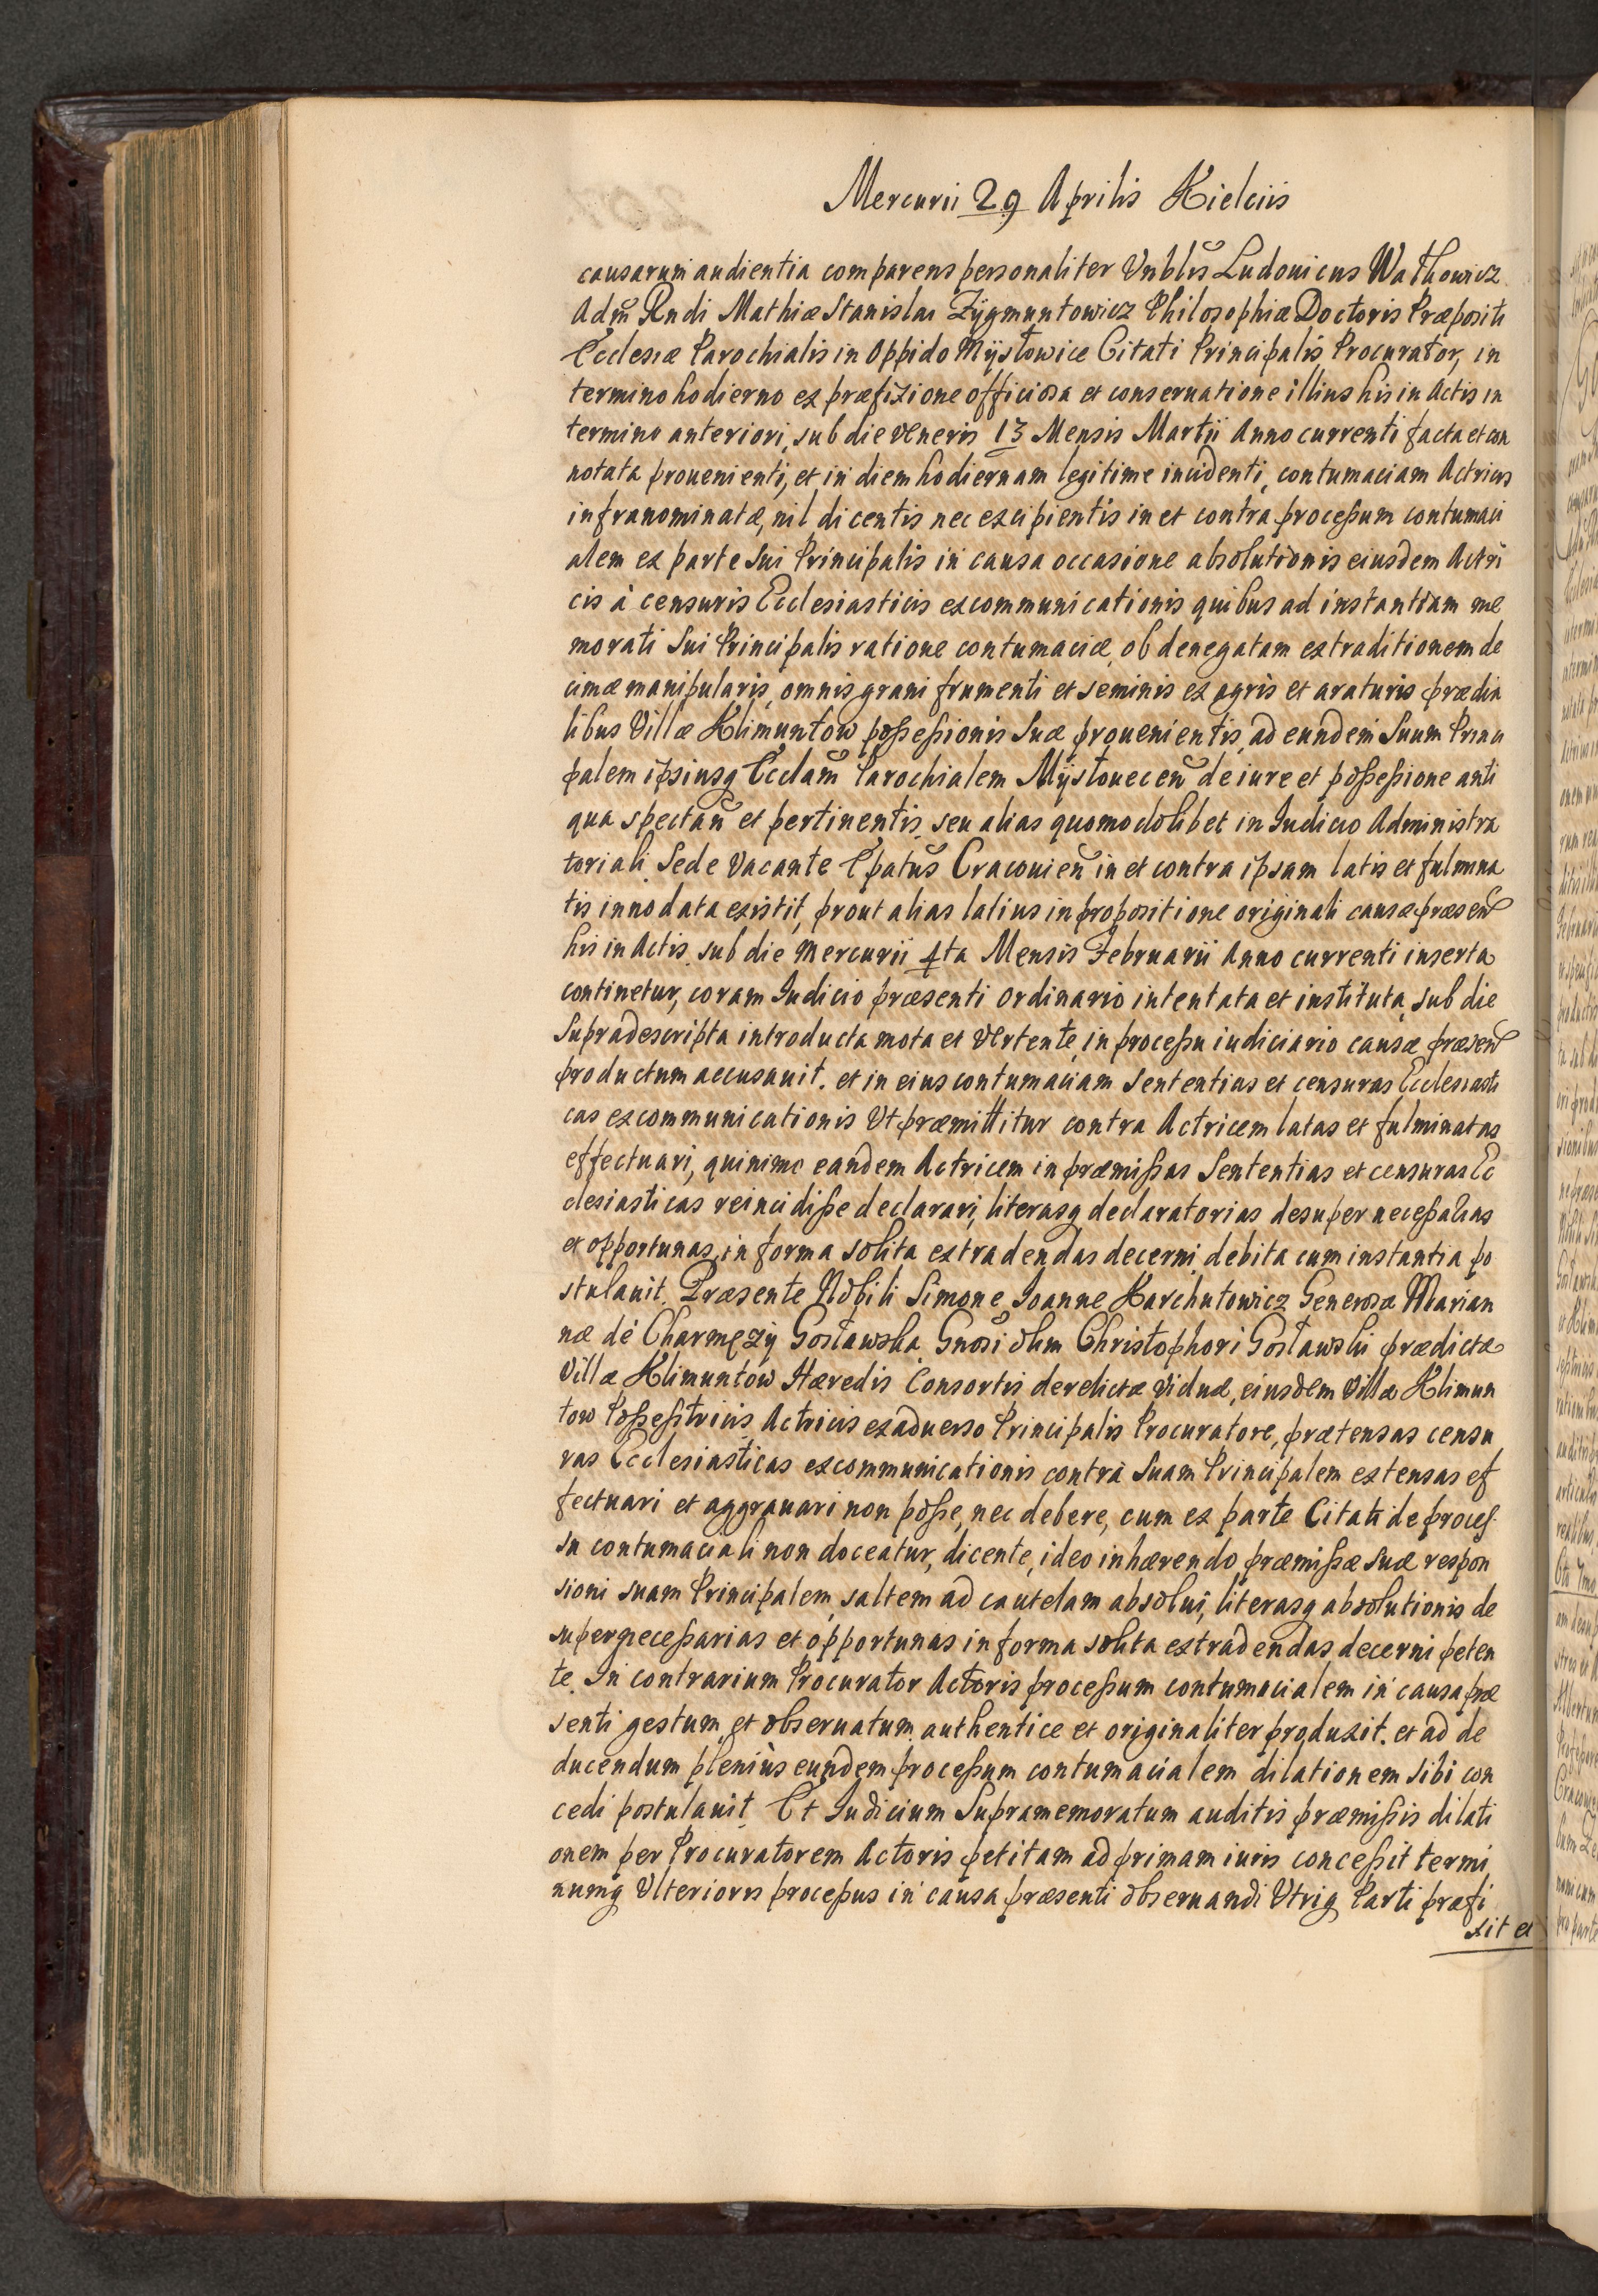 Mercurii 29 Aprilis Kielciis
causarum audientia comparens personaliter Vnblis Ludouicus Wathowicz
Adm Rndi Mathiæ Stanislai Zygmuntowicz Philosophiæ Doctoris Præpositi
Ecclesiæ Parochialis in Oppido Mysłowice Citati Principalis Procurator, in
termino hodierno ex præfixione officiosa et conseruatione illius his in Actis in
termino anteriori, sub die Veneris 13 Mensis Martii Anno currenti facta et con
notata prouenienti, et in diem hodiernam legitime incidenti, contumaciam Actricis
infranominatæ, nil dicentis nec excipientis in et contra processum contumaci
alem ex parte sui Principalis in causa occasione absolutionis eiusdem Actri
cis à censuris Ecclesiasticis excommunicationis quibus ad instantiam me
morati sui Principalis ratione contumaciæ, ob denegatam extraditionem de
cimæ manipularis, omnis grani frumenti et seminis ex agris et araturis prædia
libus Villæ Klimuntow possessionis suæ prouenientis, ad eundem suum Princi
palem ipsiusq Ecclam Parochialem Mysłouecen de iure et possessione anti
qua spectan et pertinentis, seu alias quomodolibet in Iudicio Administra
toriali Sede Vacante Epatus Cracouien in et contra ipsam latis et fulmina
tis innodata existit, prout alias latius in propositione originali causæ præsen
his in Actis sub die Mercurii 4ta Mensis Februarii Anno currenti inserta
continetur, coram Iudicio præsenti Ordinario intentata et instituta, sub die
supradescripta introducta mota et Vertente, in processu iudiciario causæ præsen
productum accusauit. et in eius contumaciam Sententias et censuras Ecclesiasti
cas excommunicationis Vt præmittitur contra Actricem latas et fulminatas
effectuari, quinimo eandem Actricem in præmissas Sententias et censuras Ec
clesiasticas reincidisse declarari, literasq declaratorias desuper necessarias
et opportunas, in forma solita extradendas decerni, debita cum instantia po
stulauit. Præsente Nobili Simone Ioanne Karchutowicz Generosæ Marian
næ de Charmęzy Gosławska Gnosi olim Christophori Gosławski prædictæ
Villæ Klimuntow Hæredis Consortis derelictæ Viduæ, eiusdem Villæ Klimun
tow Possessricis Actricis ex aduerso Principalis Procuratore, prætensas censu
ras Ecclesiasticas excommunicationis contra Suam Principalem extensas ef
fectuari et aggrauari non posse, nec debere, cum ex parte Citati de proces
su contumaciali non doceatur, dicente, ideo inhærendo præmissæ suæ respon
sioni suam Principalem, saltem ad cautelam absolui, literasq absolutionis de
super necessarias et opportunas in forma solita extradendas decerni peten
te. In contrarium Procurator Actoris processum contumacialem in causa præ
senti gestum et obseruatum authentice et originaliter produxit. et ad de
ducendum pleniùs eundem processum contumacialem dilationem sibi con
cedi postulauit. Et Iudicium Supramemoratum auditis præmissis dilati
onem per Procuratorem Actoris petitam ad primam iuris concessit termi
numq Vlterioris processus in causa præsenti obseruandi Vtriq Parti præfi
xit et